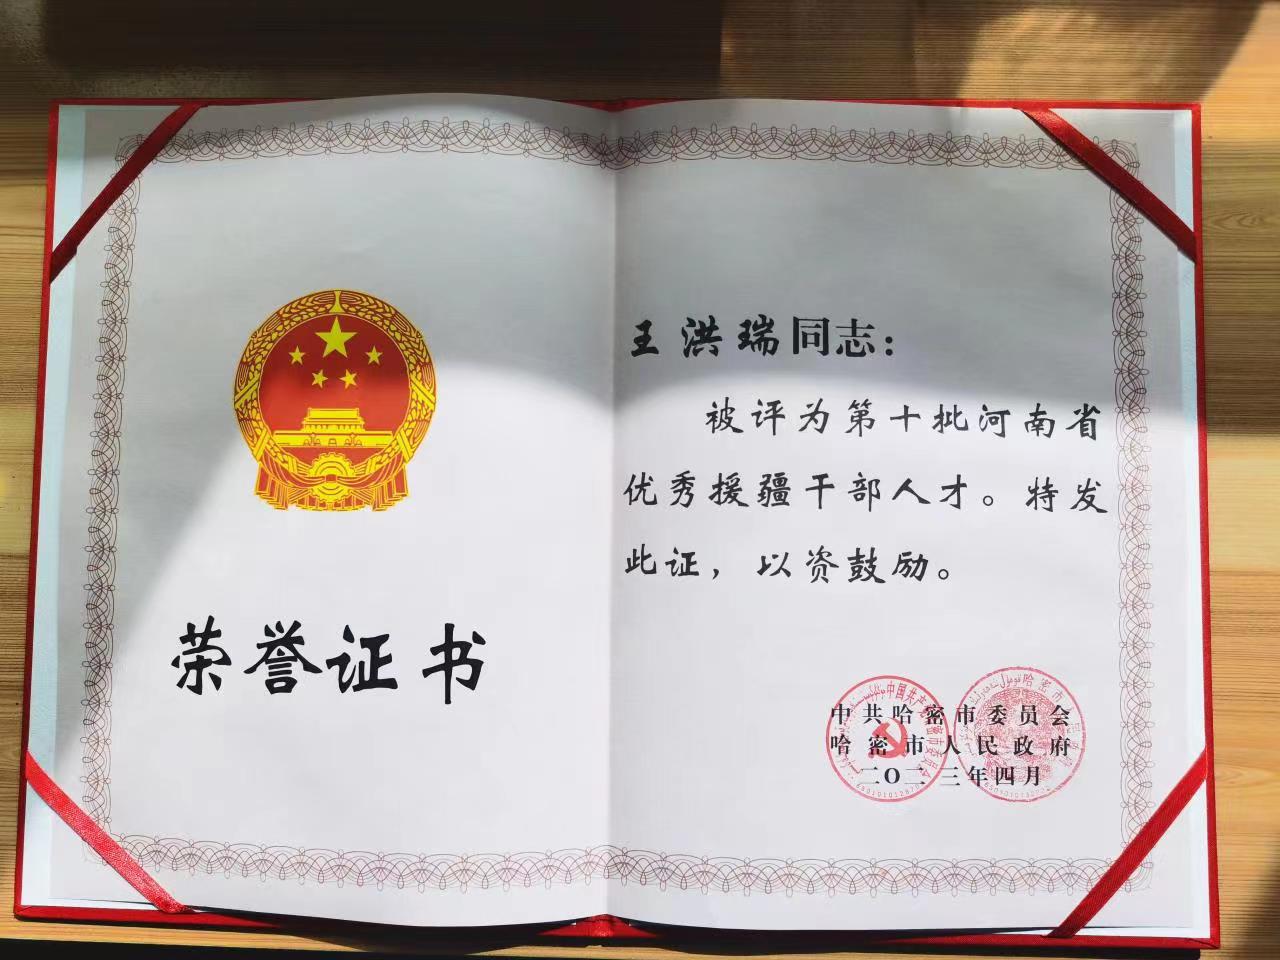 荣誉证书
王洪瑞同志：
被评为第十批河南省
优秀援疆干部人才。特发
此证，以资鼓励。
中共哈密市委员会
哈密市人民政府
二〇二三年四月